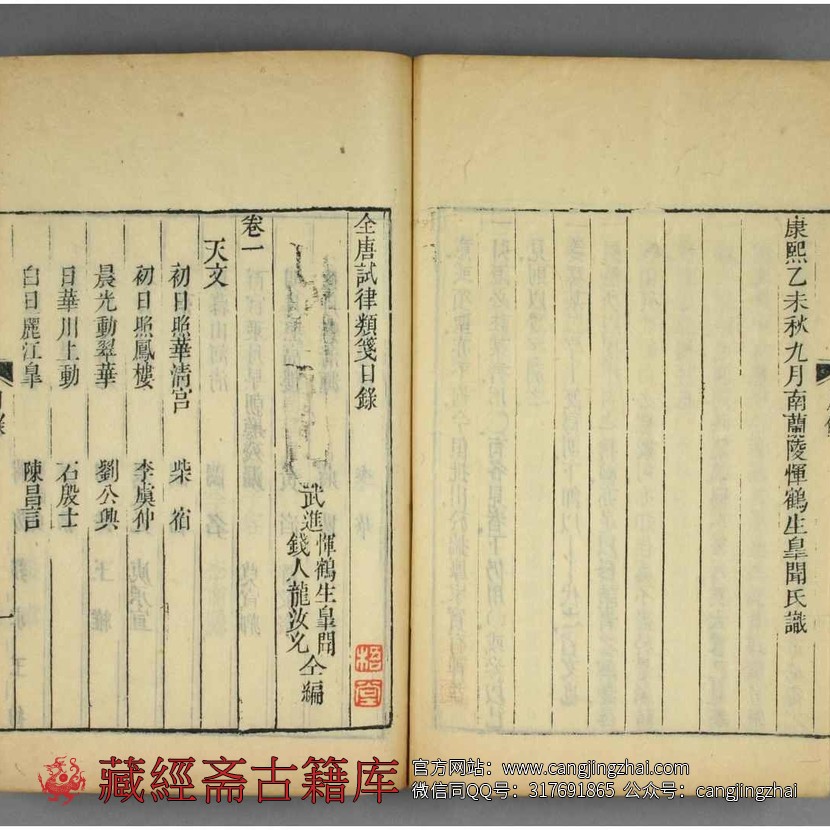 康熙乙未秋九月南蘭陵惲鶴生臯聞氏識
全唐試律類箋目錄
武進
惲鶴生臯聞
錢人龍汝
仝編
卷一
天文
初日照華清宮 柴宿
初日照鳳樓 李虞仲
晨光動翠華 劉公興
日華川上動 石殷士
白日麗江臯 陳昌言
一
藏經斋古籍库
官方网站：www.cangjingzhai.com
微信同QQ号：317691865 公众号：cangjingzhai